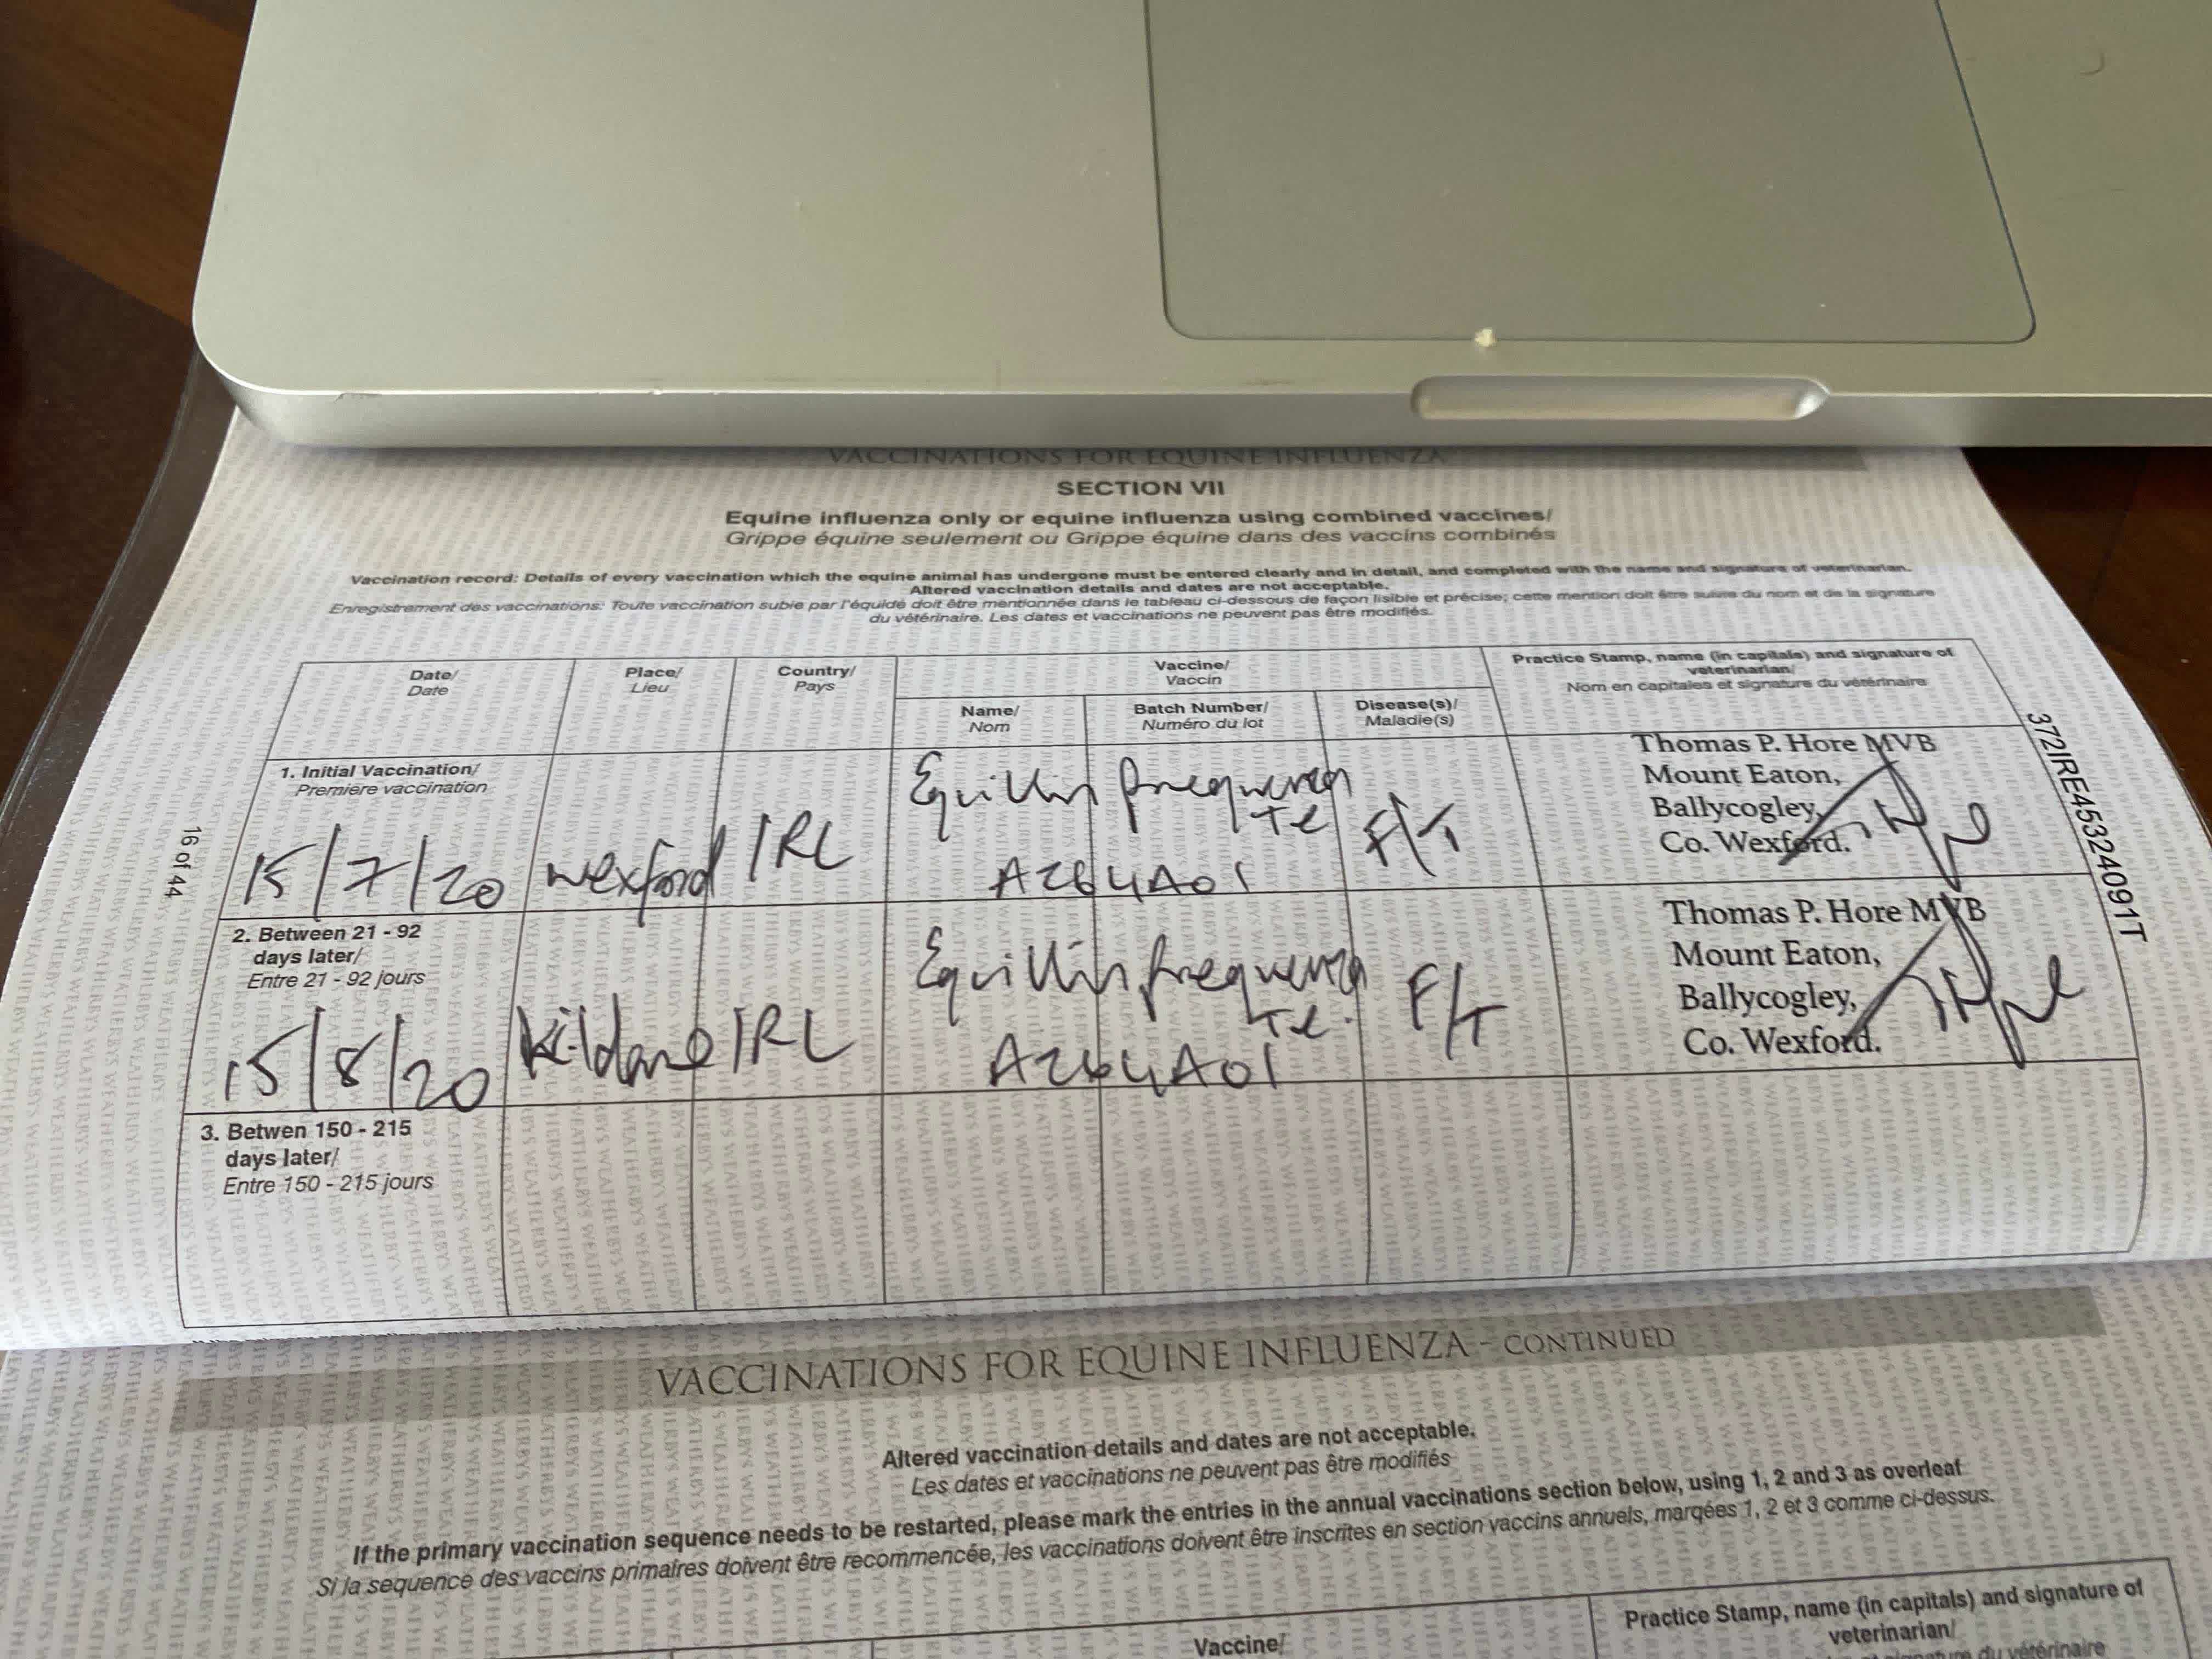 VACCINATIONS FOR EQUINE INFLUENZA
SECTION VII
Equine influenza only or equine influenza using combined vaccines/
Grippe équine seulement ou Grippe équine dans des vaccins combinés
Vaccination record: Details of every vaccination which the equine animal has undergone must be entered clearly and in detail, and completed with the name and signature of veterinarian.
Altered vaccination details and dates are not acceptable.
Enregistrement des vaccinations: Toute vaccination subie par l'équidé doit être mentionnée dans le tableau ci-dessous de façon lisible et précise; cette mention doit être suivie du nom et de la signature
du vétérinaire. Les dates et vaccinations ne peuvent pas être modifiés.
Date/
Date
Place/
Lieu
Country/
Pays
Vaccine/
Vaccin
Name/
Nom
Batch Number/
Numéro du lot
Disease(s)/
Maladie(s)
Practice Stamp, name (in capitals) and signature of
veterinarian/
Nom en capitales et signature du vétérinaire
1. Initial Vaccination/
Première vaccination
15/7/20
Wexford
IRL
Equilis prequenza
Te
A264A01
F/T
Thomas P. Hore MVB
Mount Eaton,
Ballycogley,
Co. Wexford.
2. Between 21 - 92
days later/
Entre 21 - 92 jours
15/8/20
Kildare
IRL
Equilis prequenza
Te.
A264A01
F/T
Thomas P. Hore MVB
Mount Eaton,
Ballycogley,
Co. Wexford.
3. Betwen 150 - 215
days later/
Entre 150 - 215 jours
16 of 44
372IRE45324091T
VACCINATIONS FOR EQUINE INFLUENZA - CONTINUED
Altered vaccination details and dates are not acceptable.
Les dates et vaccinations ne peuvent pas être modifiés
If the primary vaccination sequence needs to be restarted, please mark the entries in the annual vaccinations section below, using 1, 2 and 3 as overleaf
Si la sequence des vaccins primaires doivent être recommencée, les vaccinations doivent être inscrites en section vaccins annuels, marqées 1, 2 et 3 comme ci-dessus.
Vaccine/
Practice Stamp, name (in capitals) and signature of
veterinarian/
signature du vétérinaire